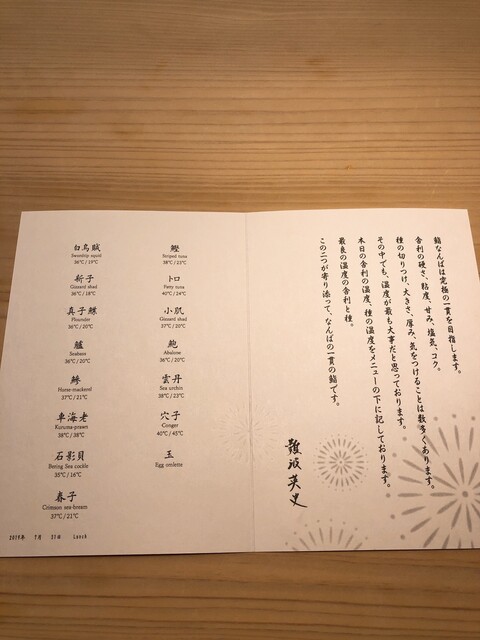 白烏賊
Swordtip squid
36℃/19℃
新子
Gizzard shad
36℃/18℃
真子鰈
Flounder
36℃/20℃
鱸
Seabass
36℃/20℃
鯵
Horse-mackerel
37℃/21℃
車海老
Kuruma-prawn
38℃/38℃
石影貝
Bering Sea cockle
35℃/16℃
春子
Crimson sea-bream
37℃/21℃
鰹
Striped tuna
38℃/23℃
トロ
Fatty tuna
40℃/24℃
小肌
Gizzard shad
37℃/20℃
鮑
Abalone
36℃/20℃
雲丹
Sea urchin
38℃/23℃
穴子
Conger
40℃/45℃
玉
Egg omlette
7月 31日 Lunch
鮨なんばは究極の一貫を目指します。
舎利の硬さ、粘度、甘み、塩気、コク。
種の切りつけ、大きさ、厚み、気をつけることは数多くあります。
その中でも、温度が最も大事だと思っております。
本日の舎利の温度、種の温度をメニューの下に記しております。
最良の温度の舎利と種。
この二つが寄り添って、なんばの一貫の鮨です。
難波英史